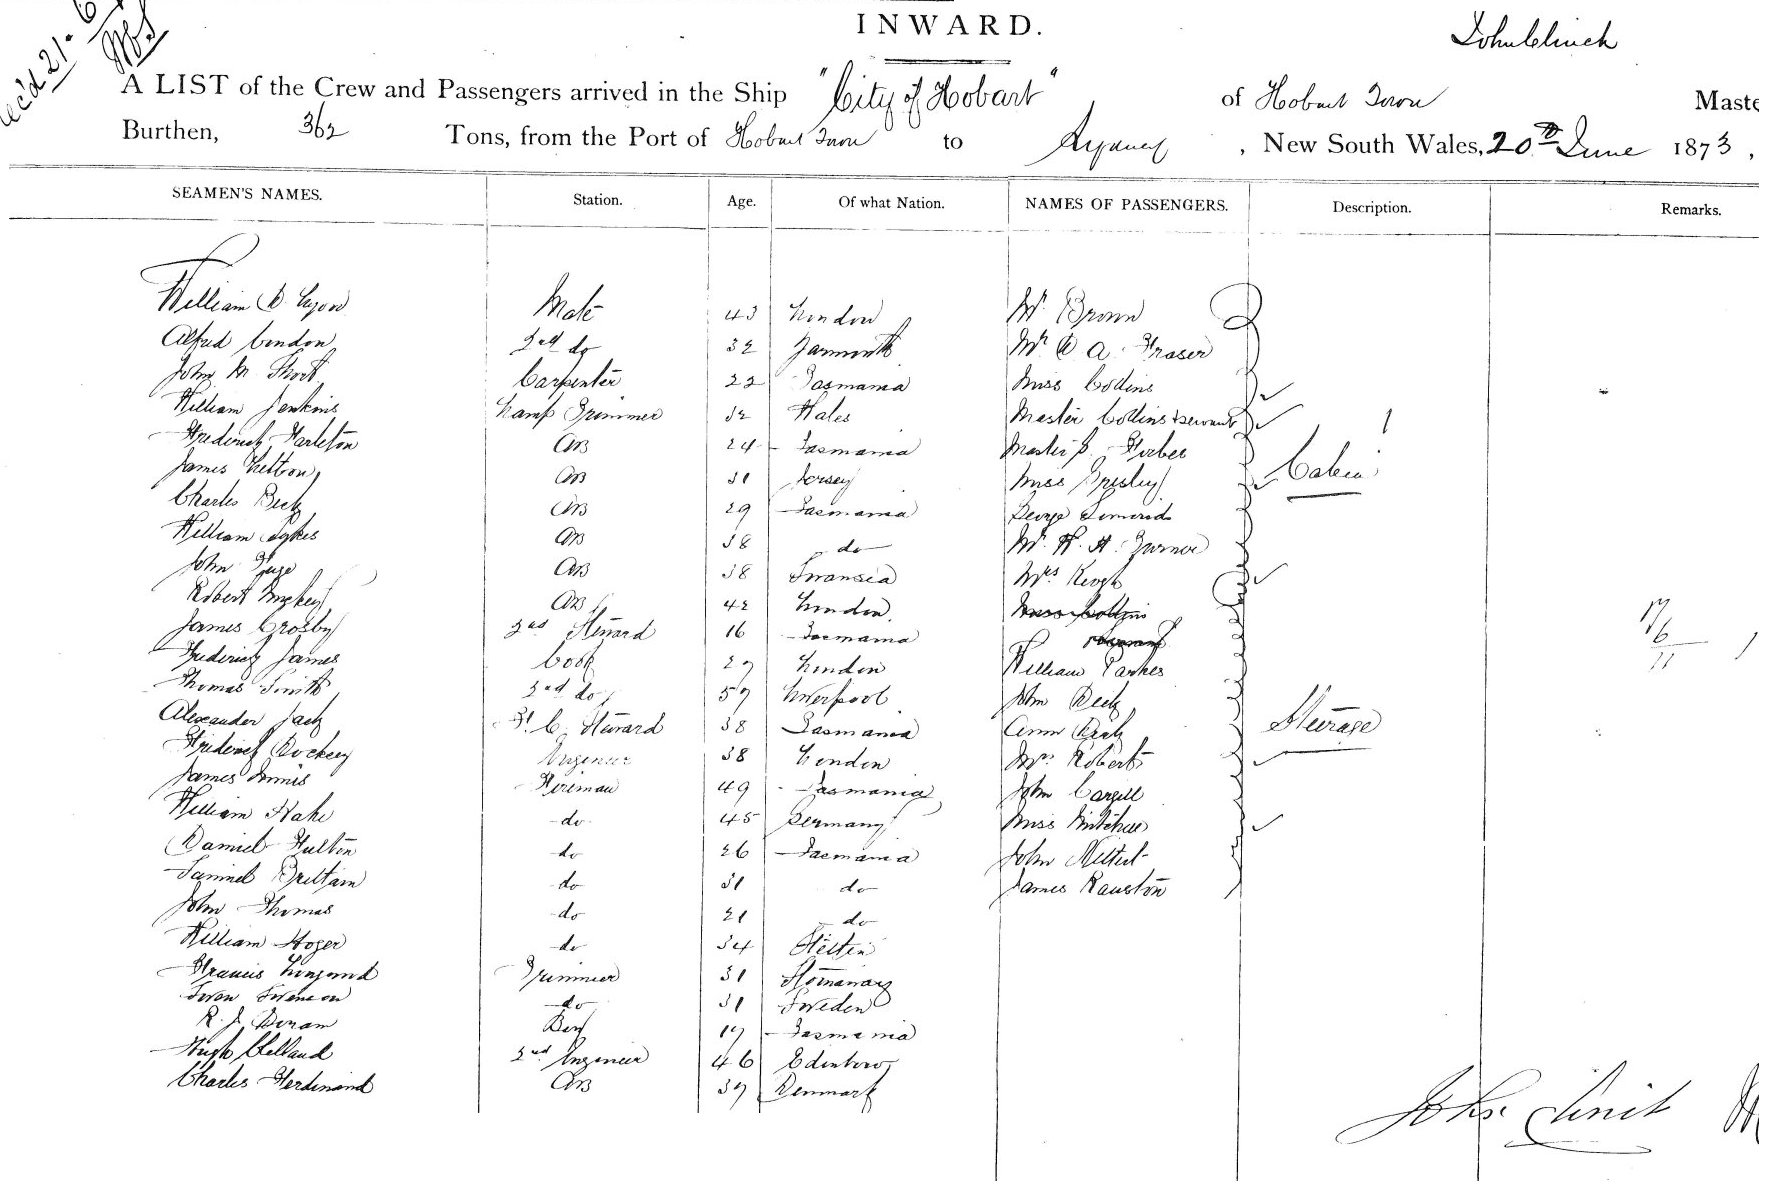 rec'd 21. 6
INWARD.
John Clinch
A LIST of the Crew and Passengers arrived in the Ship "City of Hobart" of Hobart Town Maste
Burthen, 362 Tons, from the Port of Hobart Town to Sydney, New South Wales, 20th June 1873,
SEAMEN'S NAMES. Station. Age. Of what Nation. NAMES OF PASSENGERS. Description. Remarks.
William D Mate 43 London Mr Brown
Alfred Condon 2nd do 32 Yarmouth Mr D A. Fraser
John M Short Carpenter 22 Tasmania Miss Collins
William Jenkins Lamp Trimmer 32 Wales Master Collins & servant
Frederick Tarleton AB 24 Tasmania Master Forbes Cabin
James AB 31 Jersey Miss
Charles Beck AB 29 Tasmania George
William Sykes AB 38 do Mr. H. H. Turner
John AB 38 Swansea Mrs Keogh
Robert AB 42 London Miss Collins
James Crosby 2nd Steward 16 Tasmania servant
Frederick James Cook 27 London William Parkes
Thomas Smith 2nd do 57 Liverpool John Beck
Alexander Jack St. C. Steward 38 Tasmania Ann Beck Steerage
Frederick Engineer 38 London Mrs Roberts
James Innis Fireman 49 Tasmania John Cargill
William Hahn do 45 Germany Miss Mitchell
Daniel Fulton do 26 Tasmania John
Samuel Brittain do 31 do James Rauston
John Thomas do 21 do
William Hoger do 34 Stettin
Francis Trimmer 31 Stornaway
Swan Swenson do 31 Sweden
R. J. Doram Boy 17 Tasmania
Hugh Clelland 2nd Engineer 46 Edinboro
Charles Ferdinand AB 37 Denmark
John Clinch M